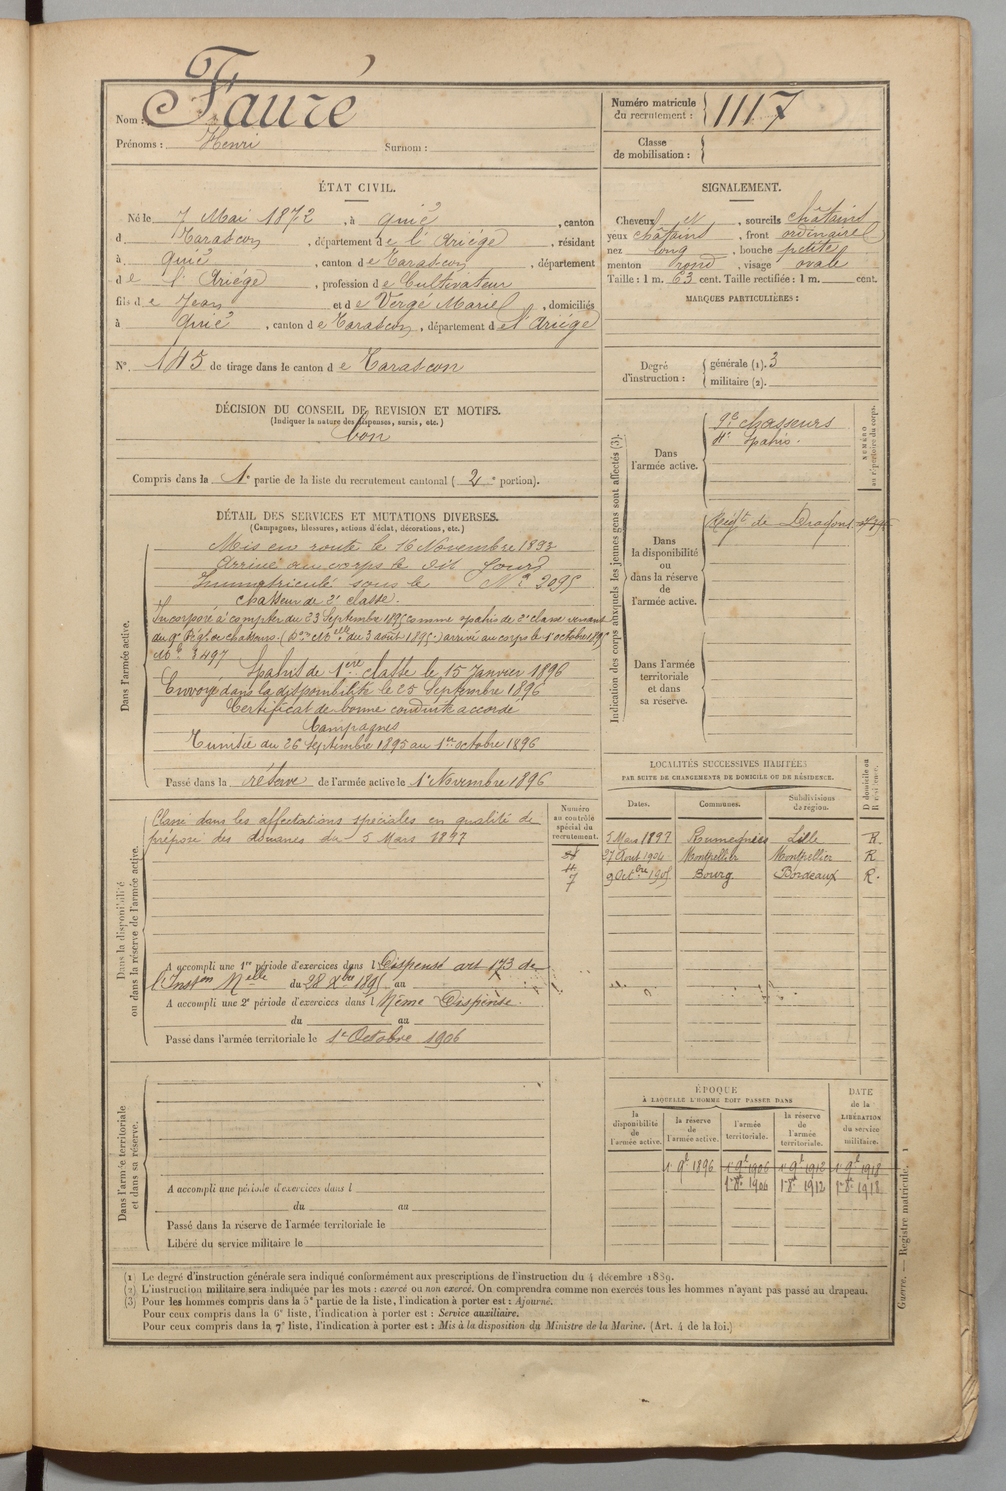 Nom : Fauré
Prénoms : Henri Surnom :
Numéro matricule du recrutement : 1117
Classe de mobilisation :
ÉTAT CIVIL.
Né le 7 Mai 1872, à Quié, canton
d Tarascon, département de l'Ariége, résidant
à Quié, canton de Tarascon, département
de l'Ariége, profession de Cultivateur
fils de Jean et de Vergé Marie, domiciliés
à Quié, canton de Tarascon, département de l'Ariége
N° 145 de tirage dans le canton de Tarascon
SIGNALEMENT.
Cheveux et, sourcils châtains
yeux châtains, front ordinaire
nez long, bouche petite
menton rond, visage ovale
Taille : 1 m. 63 cent. Taille rectifiée : 1 m. cent.
MARQUES PARTICULIÈRES :
Degré d'instruction : générale (1). 3
militaire (2).
DÉCISION DU CONSEIL DE REVISION ET MOTIFS.
(Indiquer la nature des dispenses, sursis, etc.)
bon
Compris dans la 1e partie de la liste du recrutement cantonal ( 2e portion).
DÉTAIL DES SERVICES ET MUTATIONS DIVERSES.
(Campagnes, blessures, actions d'éclat, décorations, etc.)
Dans l'armée active.
Mis en route le 16 Novembre 1893
Arrivé au corps le dit jour
Immatriculé sous le N° 2095
chasseur de 2e classe.
Incorporé à compter du 23 Septembre 1895 comme spahis de 2e classe venant
du 9e Régt de chasseurs. (Don Melle du 3 août 1895) arrivé au corps le 1e octobre 1895
Mle 3497
Spahis de 1ère classe le 15 Janvier 1896
Envoyé dans la disponibilité le 25 Septembre 1896
Certificat de bonne conduite accordé
Campagnes
Tunisie du 26 Septembre 1895 au 1er octobre 1896
Passé dans la réserve de l'armée active le 1e Novembre 1896
Indication des corps auxquels les jeunes gens sont affectés (3).
NUMÉRO au répertoire du corps.
Dans l'armée active.
9e chasseurs
4e Spahis.
Dans la disponibilité ou dans la réserve de l'armée active.
Régt de Dragons
Dans l'armée territoriale et dans sa réserve.
LOCALITÉS SUCCESSIVES HABITÉES
PAR SUITE DE CHANGEMENTS DE DOMICILE OU DE RÉSIDENCE.
Dates. Communes. Subdivisions de région. D domicile ou R résidence.
5 Mars 1897 Lille R
27 Aout 1904 Montpellier Montpellier R
9 Octbre 1905 Bourg Bordeaux R.
Dans la disponibilité ou dans la réserve de l'armée active.
Numéro au contrôle spécial du recrutement.
7
Classé dans les affectations spéciales en qualité de
préposé des douanes du 5 Mars 1897
A accompli une 1re période d'exercices dans l Dispensé art 173 de
l'Inston Melle du 28 Xbre 1895 au
A accompli une 2e période d'exercices dans l Même Dispense.
du au
Passé dans l'armée territoriale le 1e Octobre 1906
Dans l'armée territoriale et dans sa réserve.
A accompli une période d'exercices dans l
du au
Passé dans la réserve de l'armée territoriale le
Libéré du service militaire le
ÉPOQUE
À LAQUELLE L'HOMME DOIT PASSER DANS
la disponibilité de l'armée active. la réserve de l'armée active. l'armée territoriale. la réserve de l'armée territoriale. DATE de la LIBÉRATION du service militaire.
1e 9bre 1896 1e 9bre 1906 1e 9bre 1912 1e 9bre 1918
1e 8bre 1906 1e 8bre 1912 1e 8bre 1918
(1) Le degré d'instruction générale sera indiqué conformément aux prescriptions de l'instruction du 4 décembre 1889.
(2) L'instruction militaire sera indiquée par les mots : exercé ou non exercé. On comprendra comme non exercés tous les hommes n'ayant pas passé au drapeau.
(3) Pour les hommes compris dans la 5e partie de la liste, l'indication à porter est : Ajourné.
Pour ceux compris dans la 6e liste, l'indication à porter est : Service auxiliaire.
Pour ceux compris dans la 7e liste, l'indication à porter est : Mis à la disposition du Ministre de la Marine. (Art. 4 de la loi.)
Guerre. — Registre matricule. 1